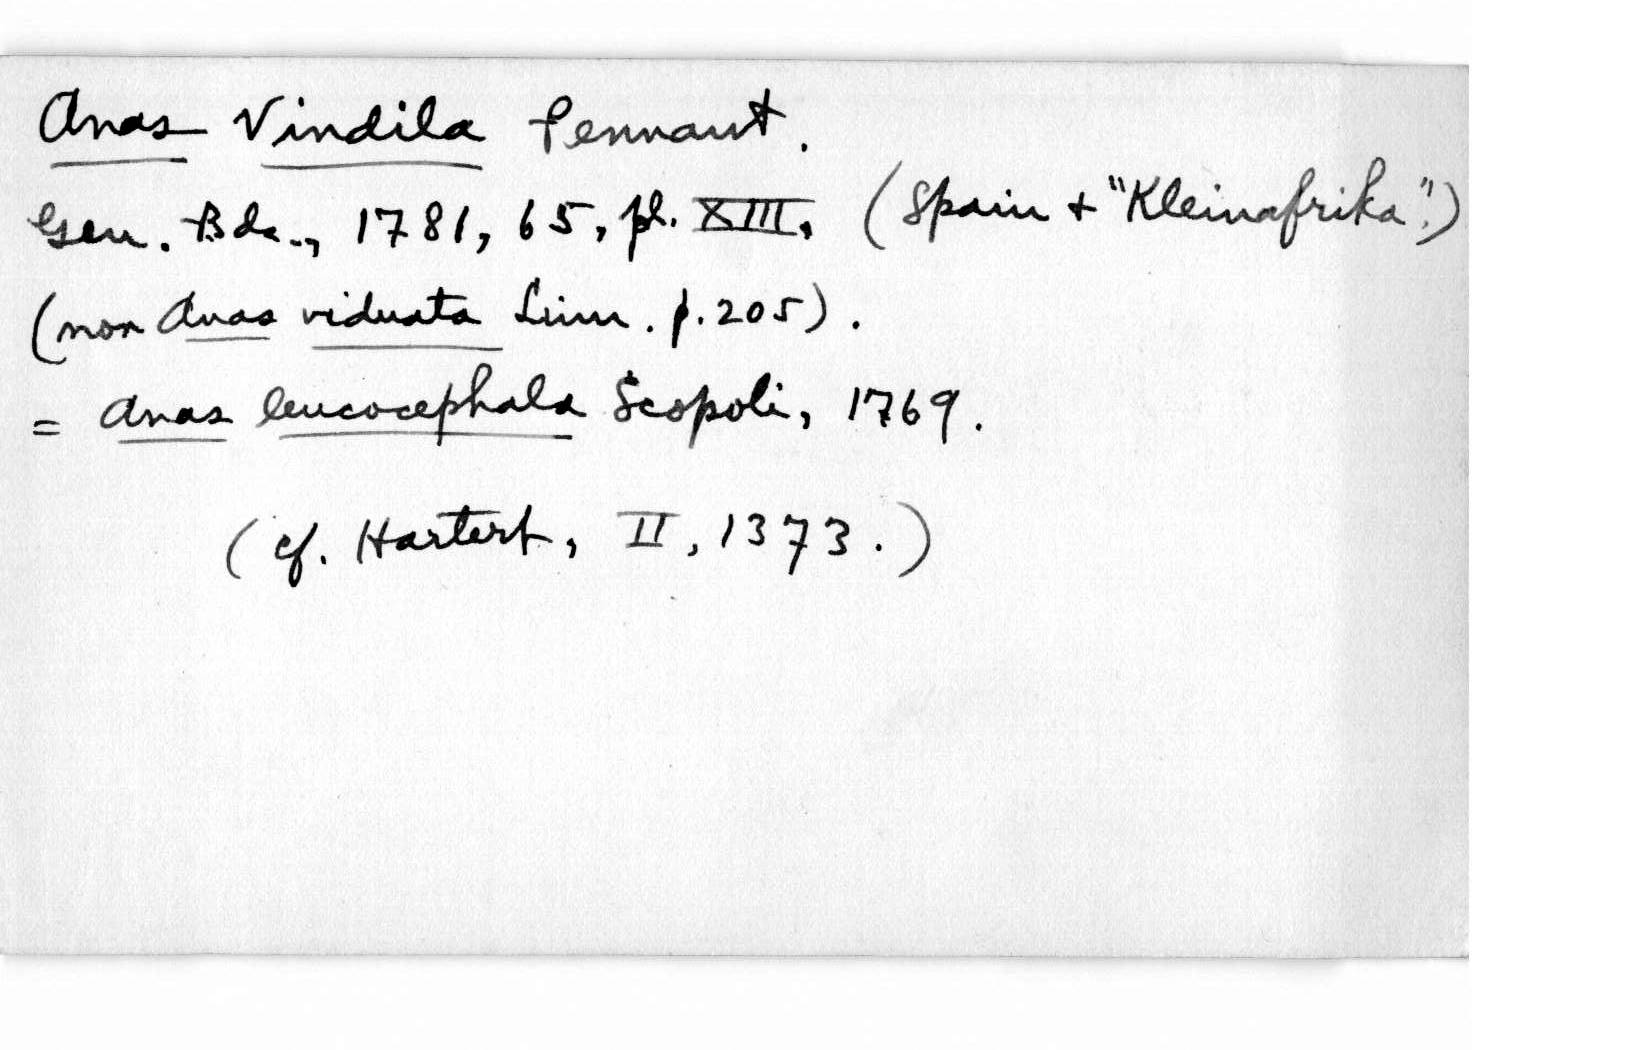 Anas Vindila Pennant.
Gen. Bds., 1781, 65, pl. XIII, (Spain + "Kleinafrika".)
(non Anas viduata Linn. p. 205).
= Anas leucocephala Scopoli, 1769.
(cf. Hartert, II, 1373.)